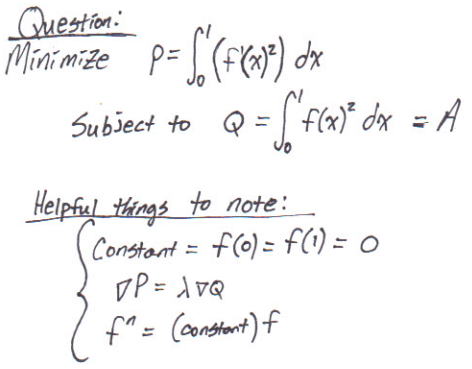 Question:
Minimize P = ∫₀¹ (f'(x)²) dx
Subject to Q = ∫₀¹ f(x)² dx = A
Helpful things to note:
{ Constant = f(0) = f(1) = 0
∇P = λ∇Q
f" = (constant) f